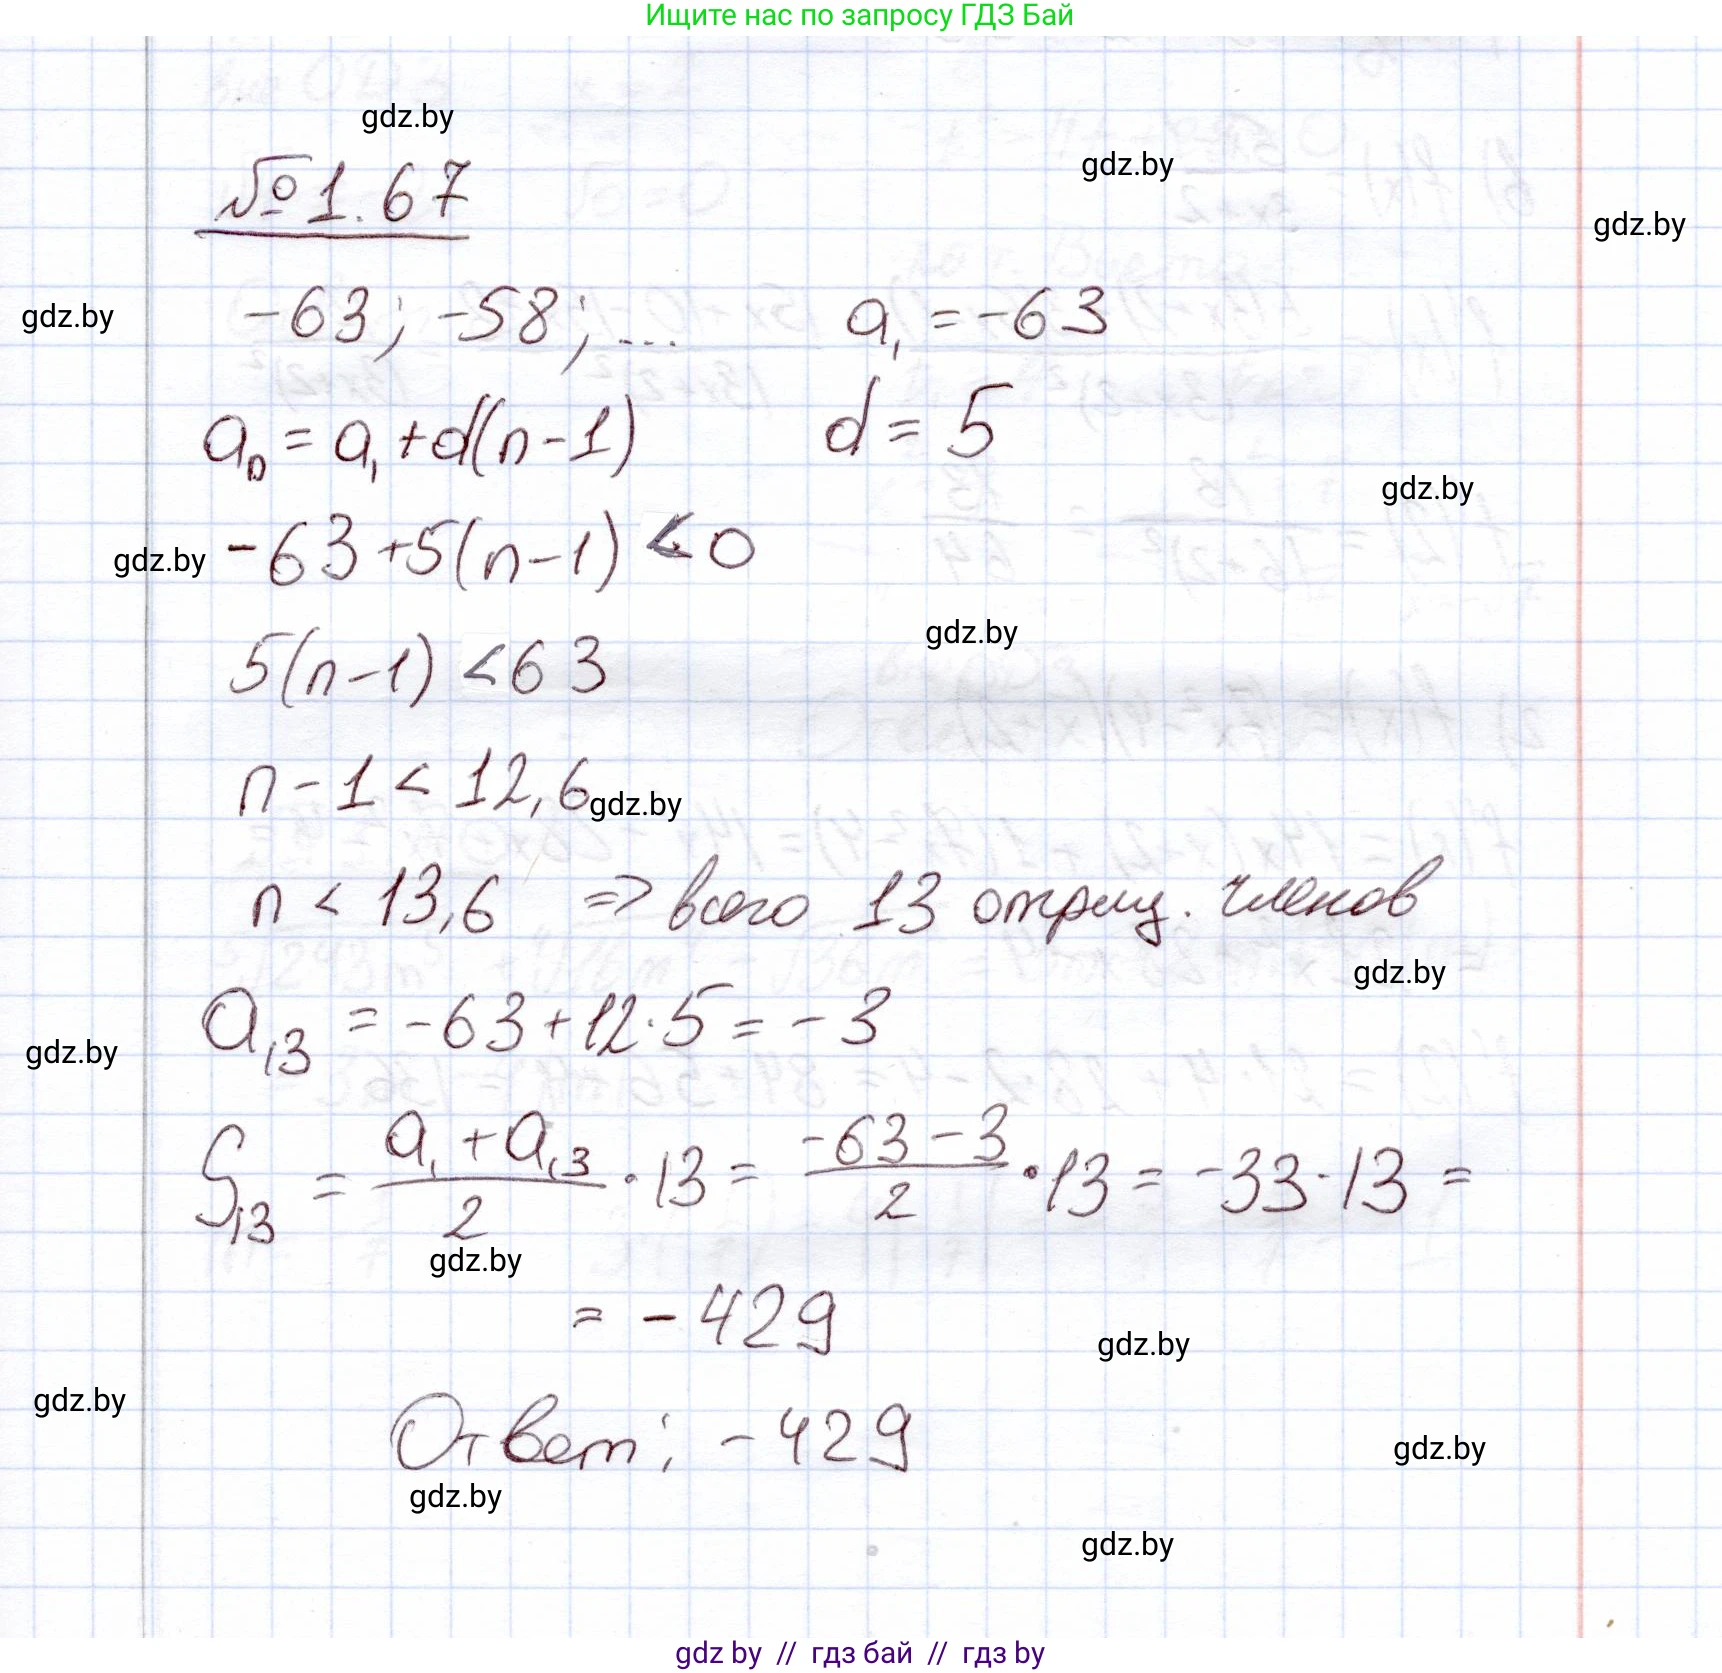 Ищите нас по запросу ГДЗ Бай
gdz.by
gdz.by
№ 1.67
gdz.by
gdz.by
-63; -58; ... a₁ = -63
aₙ = a₁ + d(n-1) d = 5
gdz.by
gdz.by
-63 + 5(n-1) < 0
gdz.by
5(n-1) < 63
n - 1 < 12,6
gdz.by
n < 13,6 => всего 13 отриц. членов
gdz.by
a₁₃ = -63 + 12 · 5 = -3
gdz.by
S₁₃ = (a₁ + a₁₃)/2 · 13 = (-63 - 3)/2 · 13 = -33 · 13 =
gdz.by
= -429
gdz.by
gdz.by
Ответ: -429
gdz.by
gdz.by
gdz.by
gdz by // гдз бай // гдз by